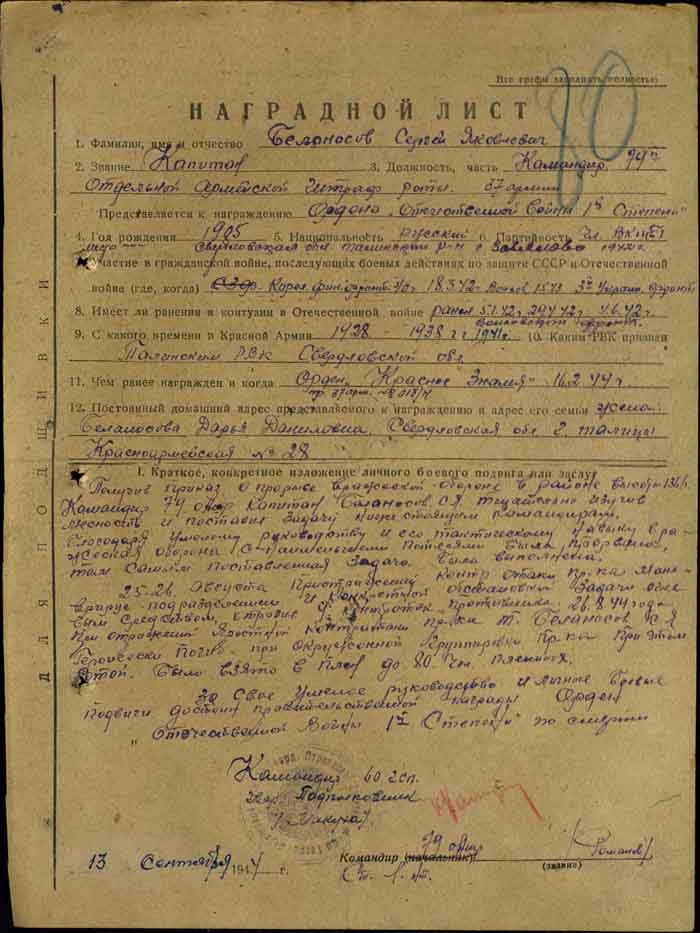 Все графы заполнять полностью
80
НАГРАДНОЙ ЛИСТ
1. Фамилия, имя и отчество Белоносов Сергей Яковлевич
2. Звание Капитан 3. Должность, часть Командир 79й
Отдельной армейской штраф роты. 37 армии
Представляется к награждению Ордена „Отечественной Войны 1й Степени"
4. Год рождения 1905 5. Национальность Русский 6. Партийность чл. ВКП(б)
Свердловская обл р-н с
Участие в гражданской войне, последующих боевых действиях по защите СССР и Отечественной
войне (где, когда) 18.3.42 3й Украин. фронт
8. Имеет ли ранения и контузии в Отечественной войне ранен 5.1.42г. 29.4.42
Волховский фронт.
9. С какого времени в Красной Армии 1928 - 1938 гг 1941г. 10. Каким РВК призван
Талицким РВК Свердловской обл
11. Чем ранее награжден и когда Орден „Красное Знамя" 16.2.44г.
12. Постоянный домашний адрес представляемого к награждению и адрес его семьи жена:
Белоносова Дарья Даниловна, Свердловская обл г. Талицы
Красноармейская № 28
I. Краткое, конкретное изложение личного боевого подвига или заслуг
Получив приказ о прорыве вражеской обороне в районе высоты
Командир 79 оашр Капитан Белоносов С.Я. тщательно изучив
месность и поставив задачу ниже стоящим командирам.
Благодаря умелому руководству и его тактическому навыку вра-
жеская оборона с наименьшими потерями была прорвана,
тем самым поставленная задача была выполнена.
25-26 Августа при отражении контр атаки пр-ка мане-
врируя подразделением и конкретной обстановки задачи огне
вым средствам, отразив контратак противника 26.8.44 года
При отражении яростной контратаки пр-ка т. Белоносов С.Я
Героически погиб при окруженной группировки пр-ка при этом
ротой было взято в плен до 80 чл. пленных.
За свое умелое руководство и личные боевые
подвиги достоин правительственной награды Орден
„Отечественной Войны 1й Степени" по смертно
Командир 60 гсп.
гвар. Подполковник
/Макуха/
79 оашр
13 Сентября 1944 г. Командир (начальник)
Ст. Л-нт. (звание)
ДЛЯ ПОДШИВКИ